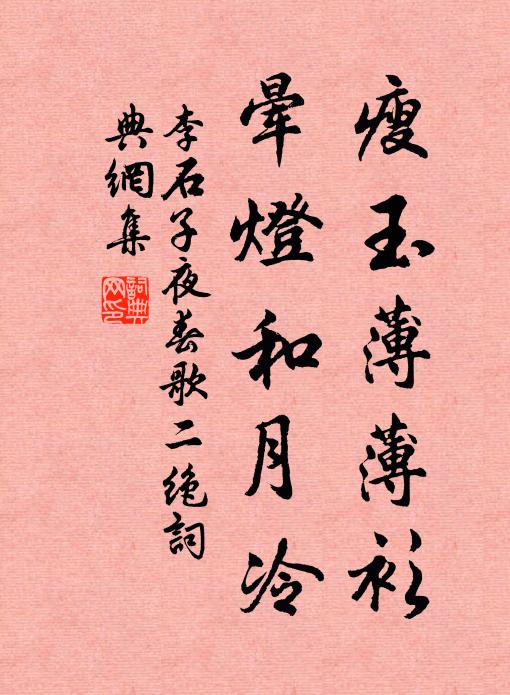 瘦玉薄薄衫
暈燈和月冷
李石子夜春歌二絶詞
典網集
詞典
网印